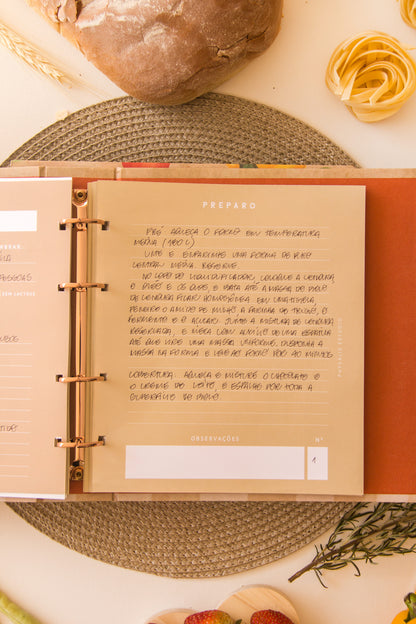 PREPARO
PRÉ AQUEÇA O FORNO EM TEMPERATURA
MÉDIA (180 C)
UNTE E ENFARINHE UMA FORMA DE FURO
CENTRAL MÉDIA. RESERVE.
NO COPO DO LIQUIDIFICADOR, COLOQUE A CENOURA
E ÓLEO E OS OVOS, E BATA ATÉ A MASSA DE BOLO
DE CENOURA FICAR HOMOGÊNEA. EM UMA TIGELA,
PENEIRE O AMIDO DE MILHO, A FARINHA DE TRIGO, O
FERMENTO E O AÇUCAR. JUNTE A MISTURA DE CENOURA
RESERVADA, E MEXA COM AUXÍLIO DE UMA ESPATULA
ATÉ QUE VIRE UMA MASSA UNIFORME. DISPONHA A
MASSA NA FORMA E LEVE AO FORNO POR 40 MINUTOS
COBERTURA: AQUEÇA E MISTURE O CHOCOLATE E
O CREME DE LEITE, E ESPALHE POR TODA A
SUPERFÍCIE DO BOLO.
OBSERVAÇÕES Nº
1
PESSOAS
SEM LACTOSE